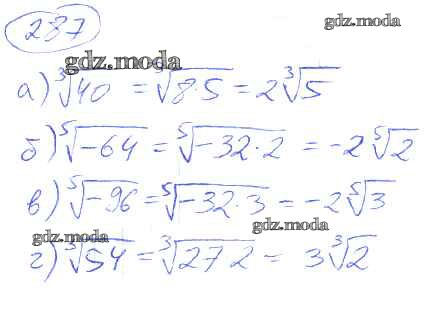 287
gdz.moda
gdz.moda
а) ∛40 = ∛8·5 = 2∛5
б) ⁵√-64 = ⁵√-32·2 = -2⁵√2
в) ⁵√-96 = ⁵√-32·3 = -2⁵√3
gdz.moda
gdz.moda
г) ∛54 = ∛27·2 = 3∛2